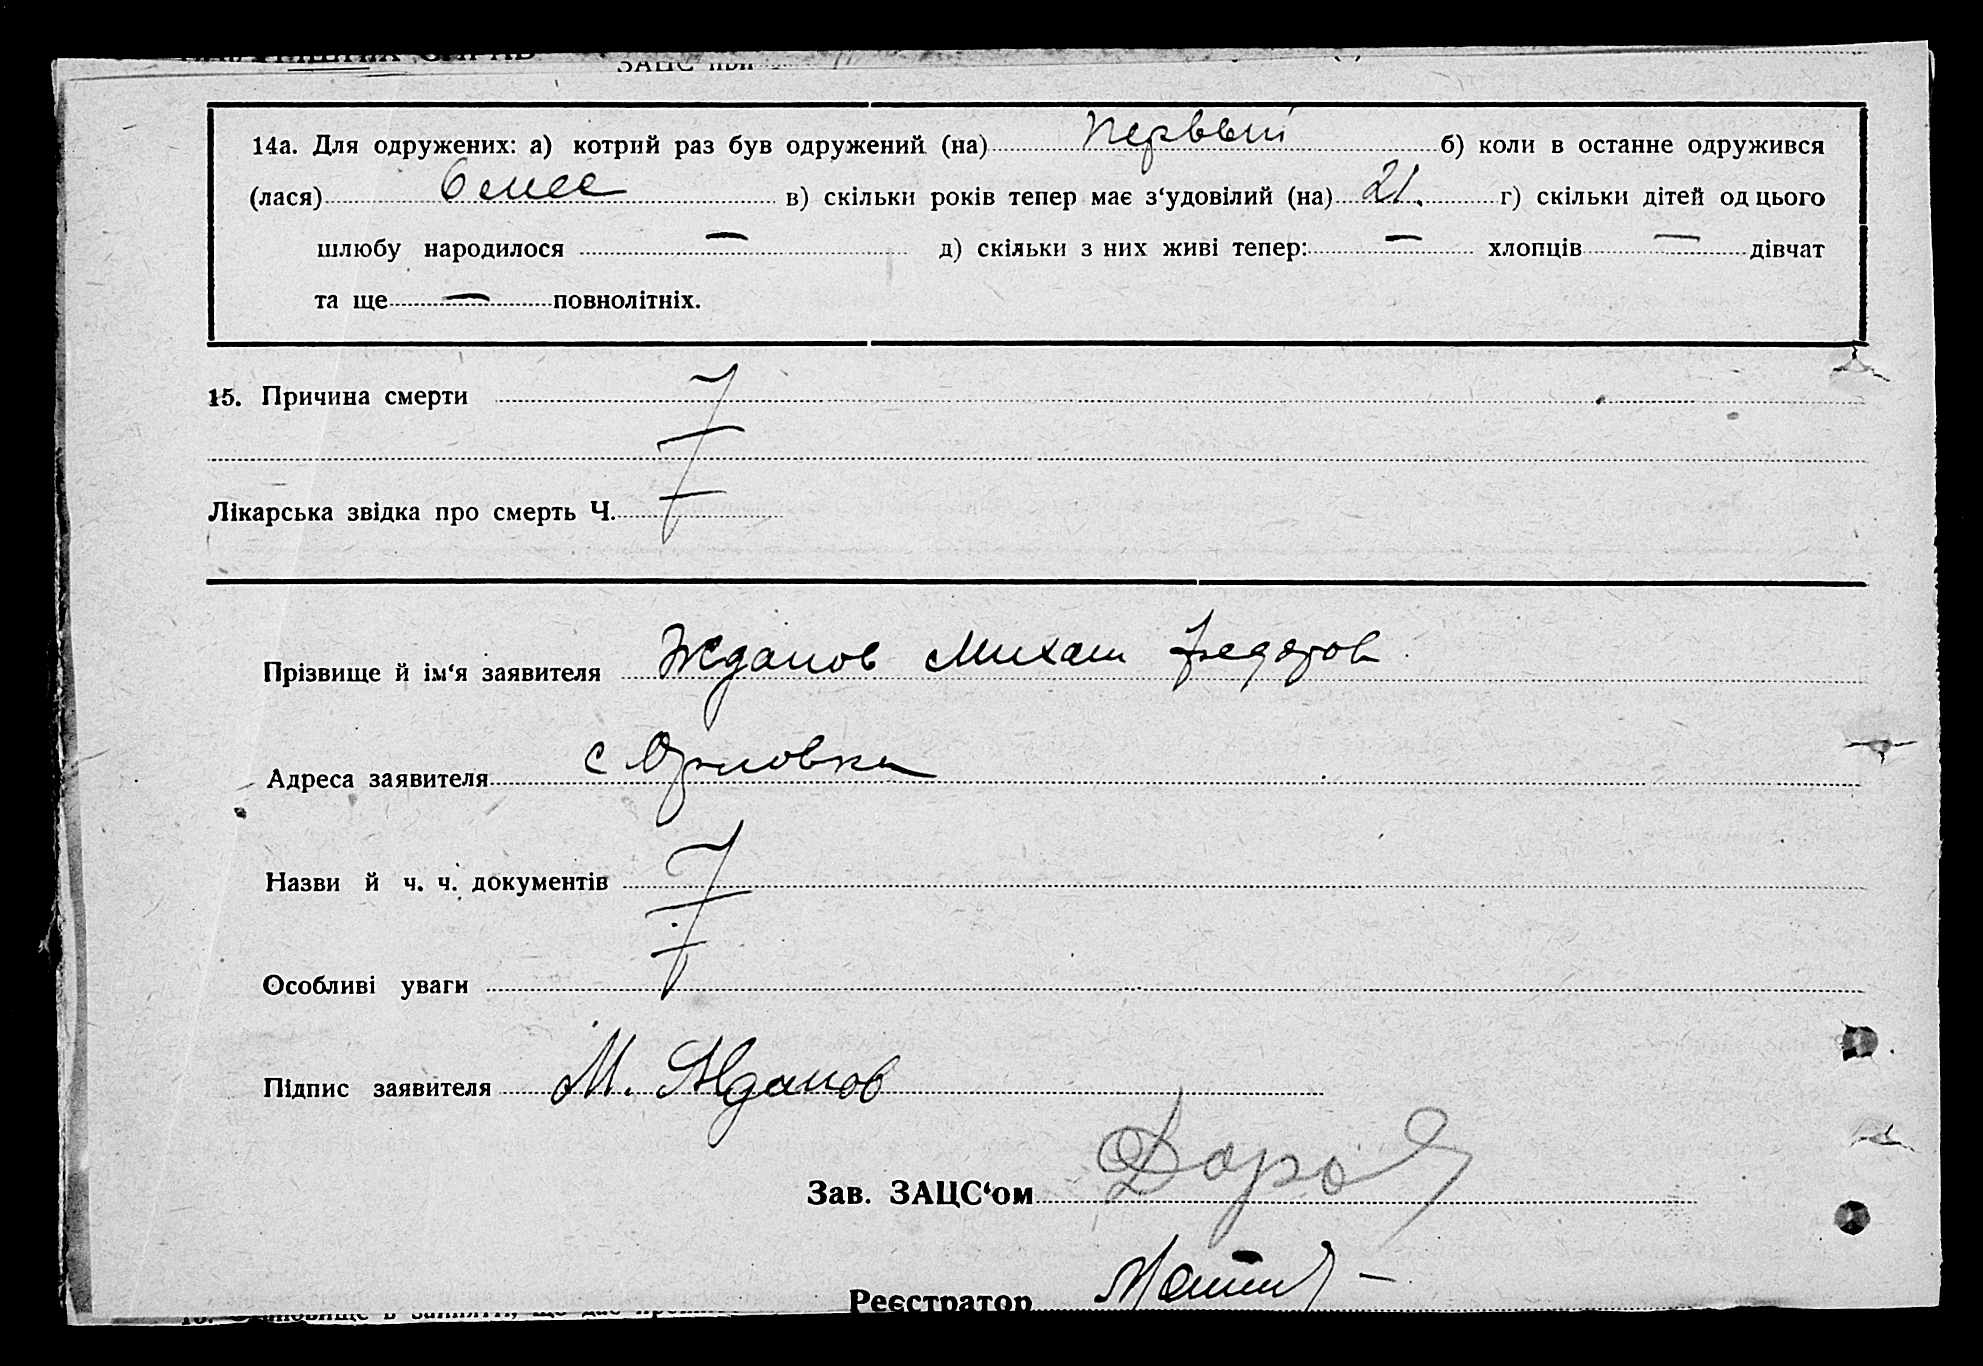 14а. Для одружених: а) котрий раз був одружений (на) первый б) коли в останне одружився
(лася) 6 мес в) скільки років тепер має з‘удовілий (на) 21. г) скільки дітей од цього
шлюбу народилося — д) скільки з них живі тепер: — хлопців — дівчат
та ще — повнолітніх.
15. Причина смерти
Лікарська звідка про смерть Ч.
Прізвище й ім‘я заявителя Жданов Михаил Федотов
Адреса заявителя с Орловка
Назви й ч. ч. документів
Особливі уваги
Підпис заявителя М. Жданов
Зав. ЗАЦС‘ом
Реєстратор